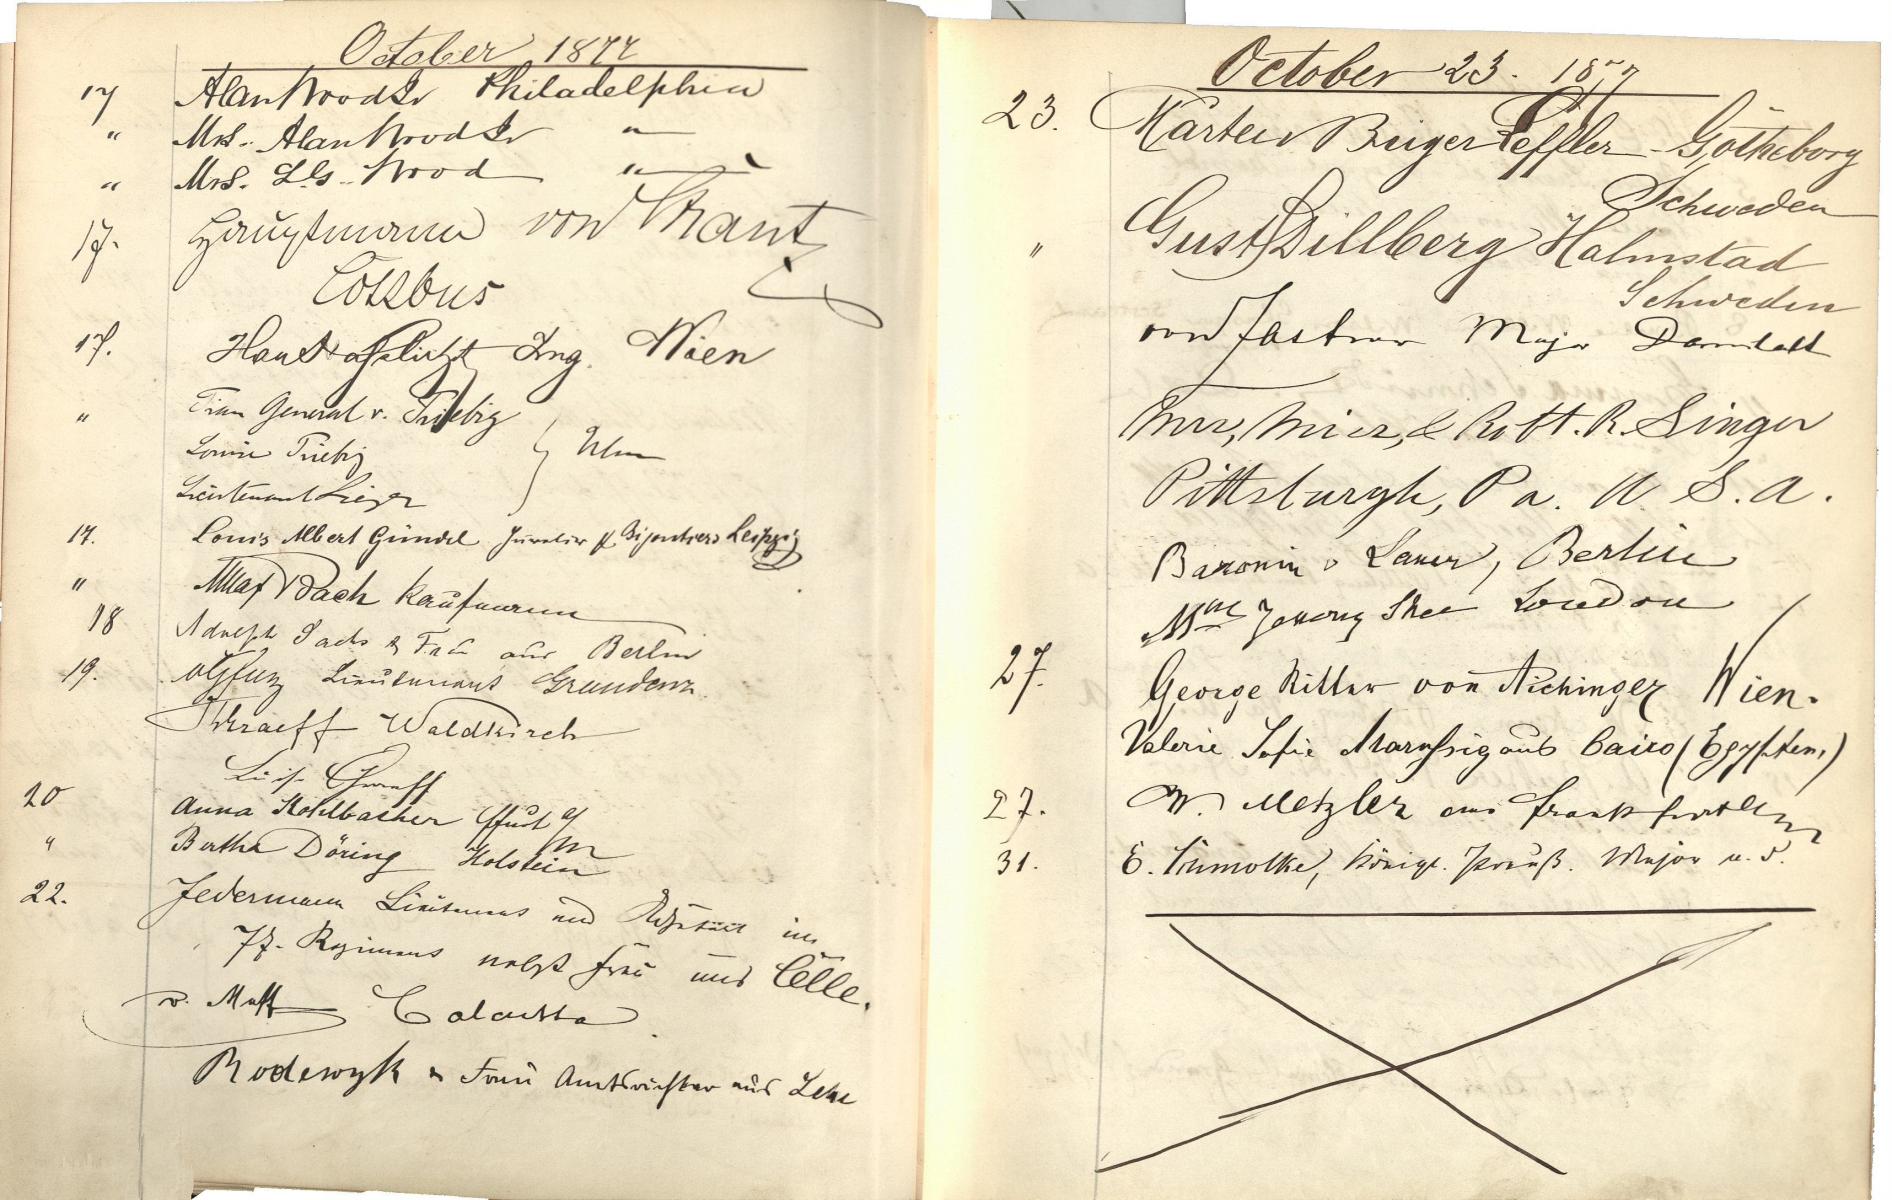 October 1877
17 Alan Wood Jr Philadelphia
" Mrs. Alan Wood Jr "
" Mrs. L. S. Wood "
17. Hauptmann von
Cottbus
17. Ing. Wien
" Frau General v. Triebig
Louise Triebig } Ulm
Lieutenant
17. Louis Albert Gündel Juwelier & Leipzig
" Max Bach Kaufmann
18 Adolph Sachs & Frau aus Berlin
19. Lieutenant Graudenz
Waldkirch
20 Anna Kohlbacher Ffurt a/m
" Bertha Döring Holstein
22. Jedermann Lieutenant und Adjutant im
77. Regiment nebst Frau aus Celle.
v. Calcutta
Rodewyk & Frau Amtsrichter aus Lehe
October 23. 1877
23. Mårten Birger Leffler Götheborg
Schweden
" Gust Dillberg Halmstad
Schweden
von Jastrow Major Darmstadt
Mrs, Miss, & Robt. R. Singer
Pittsburgh, Pa. U. S. A.
Baronin v Lauer, Berlin
Mme London
27. George Ritter von Aichinger Wien.
Valerie Sofie aus Cairo (Egypten.)
27. W. Metzler aus Frankfurt a/m
31. E. Königl. Preuß. Major a. D.